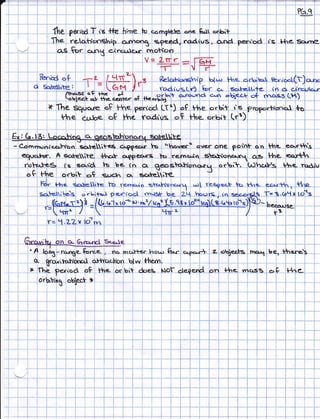 PG.9
The period T is the time to complete one full orbit
The relationship among speed, radius, and period is the same
as for any circular motion
V = 2πr / T = √(GM / r)
Period of a satellite: T² = (4π² / GM) r³
mass of the object at the center of the orbit
Relationship b/w the orbital Period (T) and
radius (r) for a satellite in a circular
orbit around an object of mass (M)
* The square of the period (T²) of the orbit is proportional to
the cube of the radius (r³)
Ex: 6.13: Locating a geostationary satellite
- Communication satellites appear to "hover" over one point on the earth's
equator. A satellite that appears to remain stationary as the earth
rotates is said to be in a geostationary orbit. What's the radius
of the orbit of such a satellite
For the satellite to remain stationary w/ respect to the earth, the
satellite's orbital period must be 24 hours, in seconds T = 8.64 x 10⁴ s
r = (GMeT² / 4π²)^⅓ = ((6.67x10⁻¹¹ N·m²/kg²)(5.98x10²⁴ kg)(8.64x10⁴s)² / 4π²)^⅓ because r³
r = 4.22 x 10⁷ m
Gravity on a Grand Scale
· A long-range force, no matter how far apart 2 objects may be, there's
a gravitational attraction b/w them.
* The period of the orbit does NOT depend on the mass of the
orbiting object *